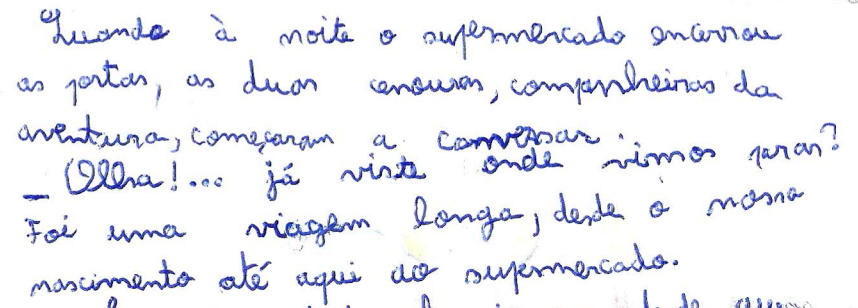 Quando à noite o supermercado encerrou
as portas, as duas cenouras, companheiras da
aventura, começaram a conversar.
_ Olha!... já viste onde vimos parar?
Foi uma viagem longa, desde o nosso
nascimento até aqui ao supermercado.